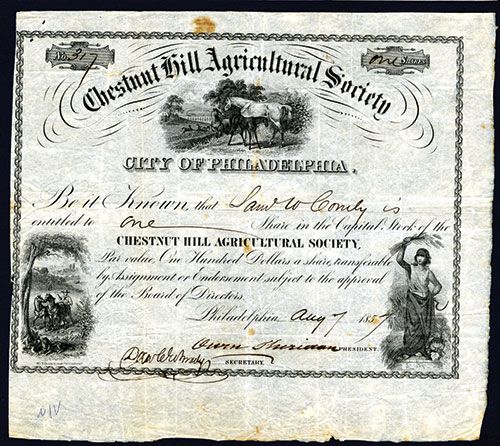 No. 317 one SHARES
Chestnut Hill Agricultural Society
CITY OF PHILADELPHIA.
Be it Known, that Saml W Comly is
entitled to one Share in the Capital Stock of the
CHESTNUT HILL AGRICULTURAL SOCIETY,
Par value One Hundred Dollars a share, transferable
by Assignment or Endorsement subject to the approval
of the Board of Directors.
Philadelphia Aug 7 1857
Owen Sheridan PRESIDENT.
SECRETARY.